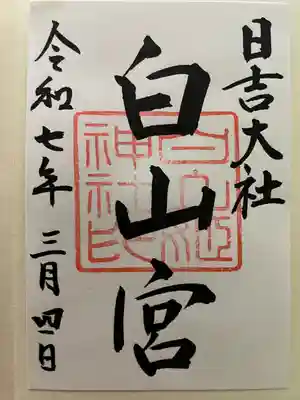 日吉大社
白山宮
白山姫
神社印
令和七年 三月四日